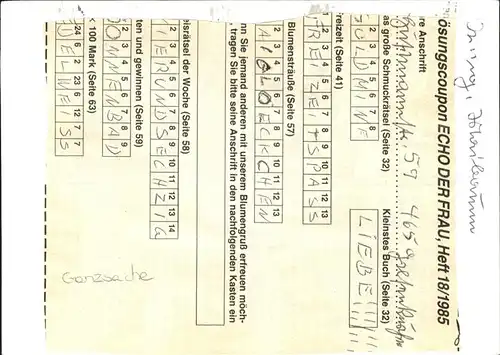 ösungscoupon ECHO DER FRAU, Heft 18/1985
re Anschrift
59 465
as große Schmuckrätsel (Seite 32)
Kleinstes Buch (Seite 32)
2 3 4 5 6 7 8
GOLDMINE
LIEBE!!!
reizeit (Seite 41)
2 3 4 5 6 7 8 9 10 11 12 13
FREIZEITSPASS
Blumensträuße (Seite 57)
nn Sie jemand anderen mit unserem Blumengruß erfreuen möch-
, tragen Sie bitte seine Anschrift in den nachfolgenden Kasten ein
elsrätsel der Woche (Seite 58)
2 3 4 5 6 7 8 9 10 11 12 13 14
VIERUNDSECHZIG
ten und gewinnen (Seite 59)
2 3 4 5 6 7 8 9
SONNENBAD
< 100 Mark (Seite 63)
24 6 2 23 6 12 7 7
EDELWEISS
Ganzsache